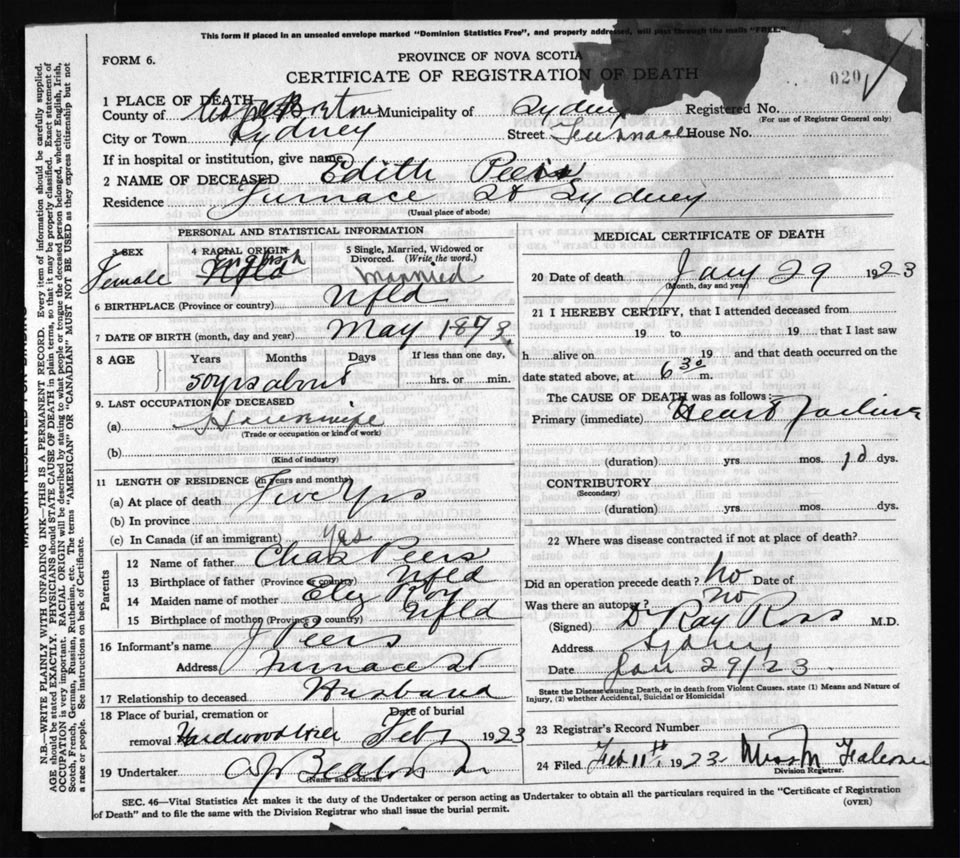 This form if placed in an unsealed envelope marked "Dominion Statistics Free", and properly addressed, will pass through the mails "FREE."
FORM 6.
PROVINCE OF NOVA SCOTIA
CERTIFICATE OF REGISTRATION OF DEATH
020
1 PLACE OF DEATH
County of Cape Breton Municipality of Sydney Registered No.
(For use of Registrar General only)
City or Town Sydney Street Furnace House No.
If in hospital or institution, give name
2 NAME OF DECEASED Edith Peers
Residence Furnace St Sydney
(Usual place of abode)
PERSONAL AND STATISTICAL INFORMATION
3 SEX 4 RACIAL ORIGIN 5 Single, Married, Widowed or Divorced. (Write the word.)
Female English Nfld Married
6 BIRTHPLACE (Province or country) Nfld
7 DATE OF BIRTH (month, day and year) May 1873
8 AGE Years Months Days If less than one day,
50 yrs about hrs. or min.
9. LAST OCCUPATION OF DECEASED
(a) Housewife
(Trade or occupation or kind of work)
(b)
(Kind of industry)
11 LENGTH OF RESIDENCE (In years and months)
(a) At place of death Five Yrs
(b) In province
(c) In Canada (if an immigrant) Yes
Parents
12 Name of father Chas Peers
13 Birthplace of father (Province or country) Nfld
14 Maiden name of mother Eliz
15 Birthplace of mother (Province or country) Nfld
16 Informant's name J Peers
Address Furnace St
17 Relationship to deceased Husband
18 Place of burial, cremation or removal Hardwood Hill Date of burial Feb 1 1923
19 Undertaker A J Beaton
(Name and address)
MEDICAL CERTIFICATE OF DEATH
20 Date of death Jany 29 1923
(Month, day and year)
21 I HEREBY CERTIFY, that I attended deceased from
19 to 19 that I last saw
h alive on 19 and that death occurred on the
date stated above, at 6 30 m.
The CAUSE OF DEATH was as follows:
Primary (immediate) Heart Failure
(duration) yrs mos. 1 d dys.
CONTRIBUTORY
(Secondary)
(duration) yrs. mos. dys.
22 Where was disease contracted if not at place of death?
Did an operation precede death? No Date of
Was there an autopsy? no
(Signed) Dr Ray Ross M.D.
Address Sydney
Date Jan 29/23
State the Disease causing Death, or in death from Violent Causes, state (1) Means and Nature of Injury, (2) whether Accidental, Suicidal or Homicidal
23 Registrar's Record Number
24 Filed Feb 11th 1923 Miss M
Division Registrar.
SEC. 46—Vital Statistics Act makes it the duty of the Undertaker or person acting as Undertaker to obtain all the particulars required in the "Certificate of Registration
of Death" and to file the same with the Division Registrar who shall issue the burial permit.
(OVER)
MARGIN RESERVED FOR BINDING
N.B.—WRITE PLAINLY WITH UNFADING INK—THIS IS A PERMANENT RECORD. Every item of information should be carefully supplied.
AGE should be stated EXACTLY. PHYSICIANS should STATE CAUSE OF DEATH in plain terms, so that it may be properly classified. Exact statement of
OCCUPATION is very important. RACIAL ORIGIN will be described by stating to what people or tongue the deceased person belonged, whether English, Irish,
Scotch, French, German, Russian, Ruthenian, etc. The terms "AMERICAN" or "CANADIAN" MUST NOT BE USED as they express citizenship but not
a race or people. See instructions on back of Certificate.